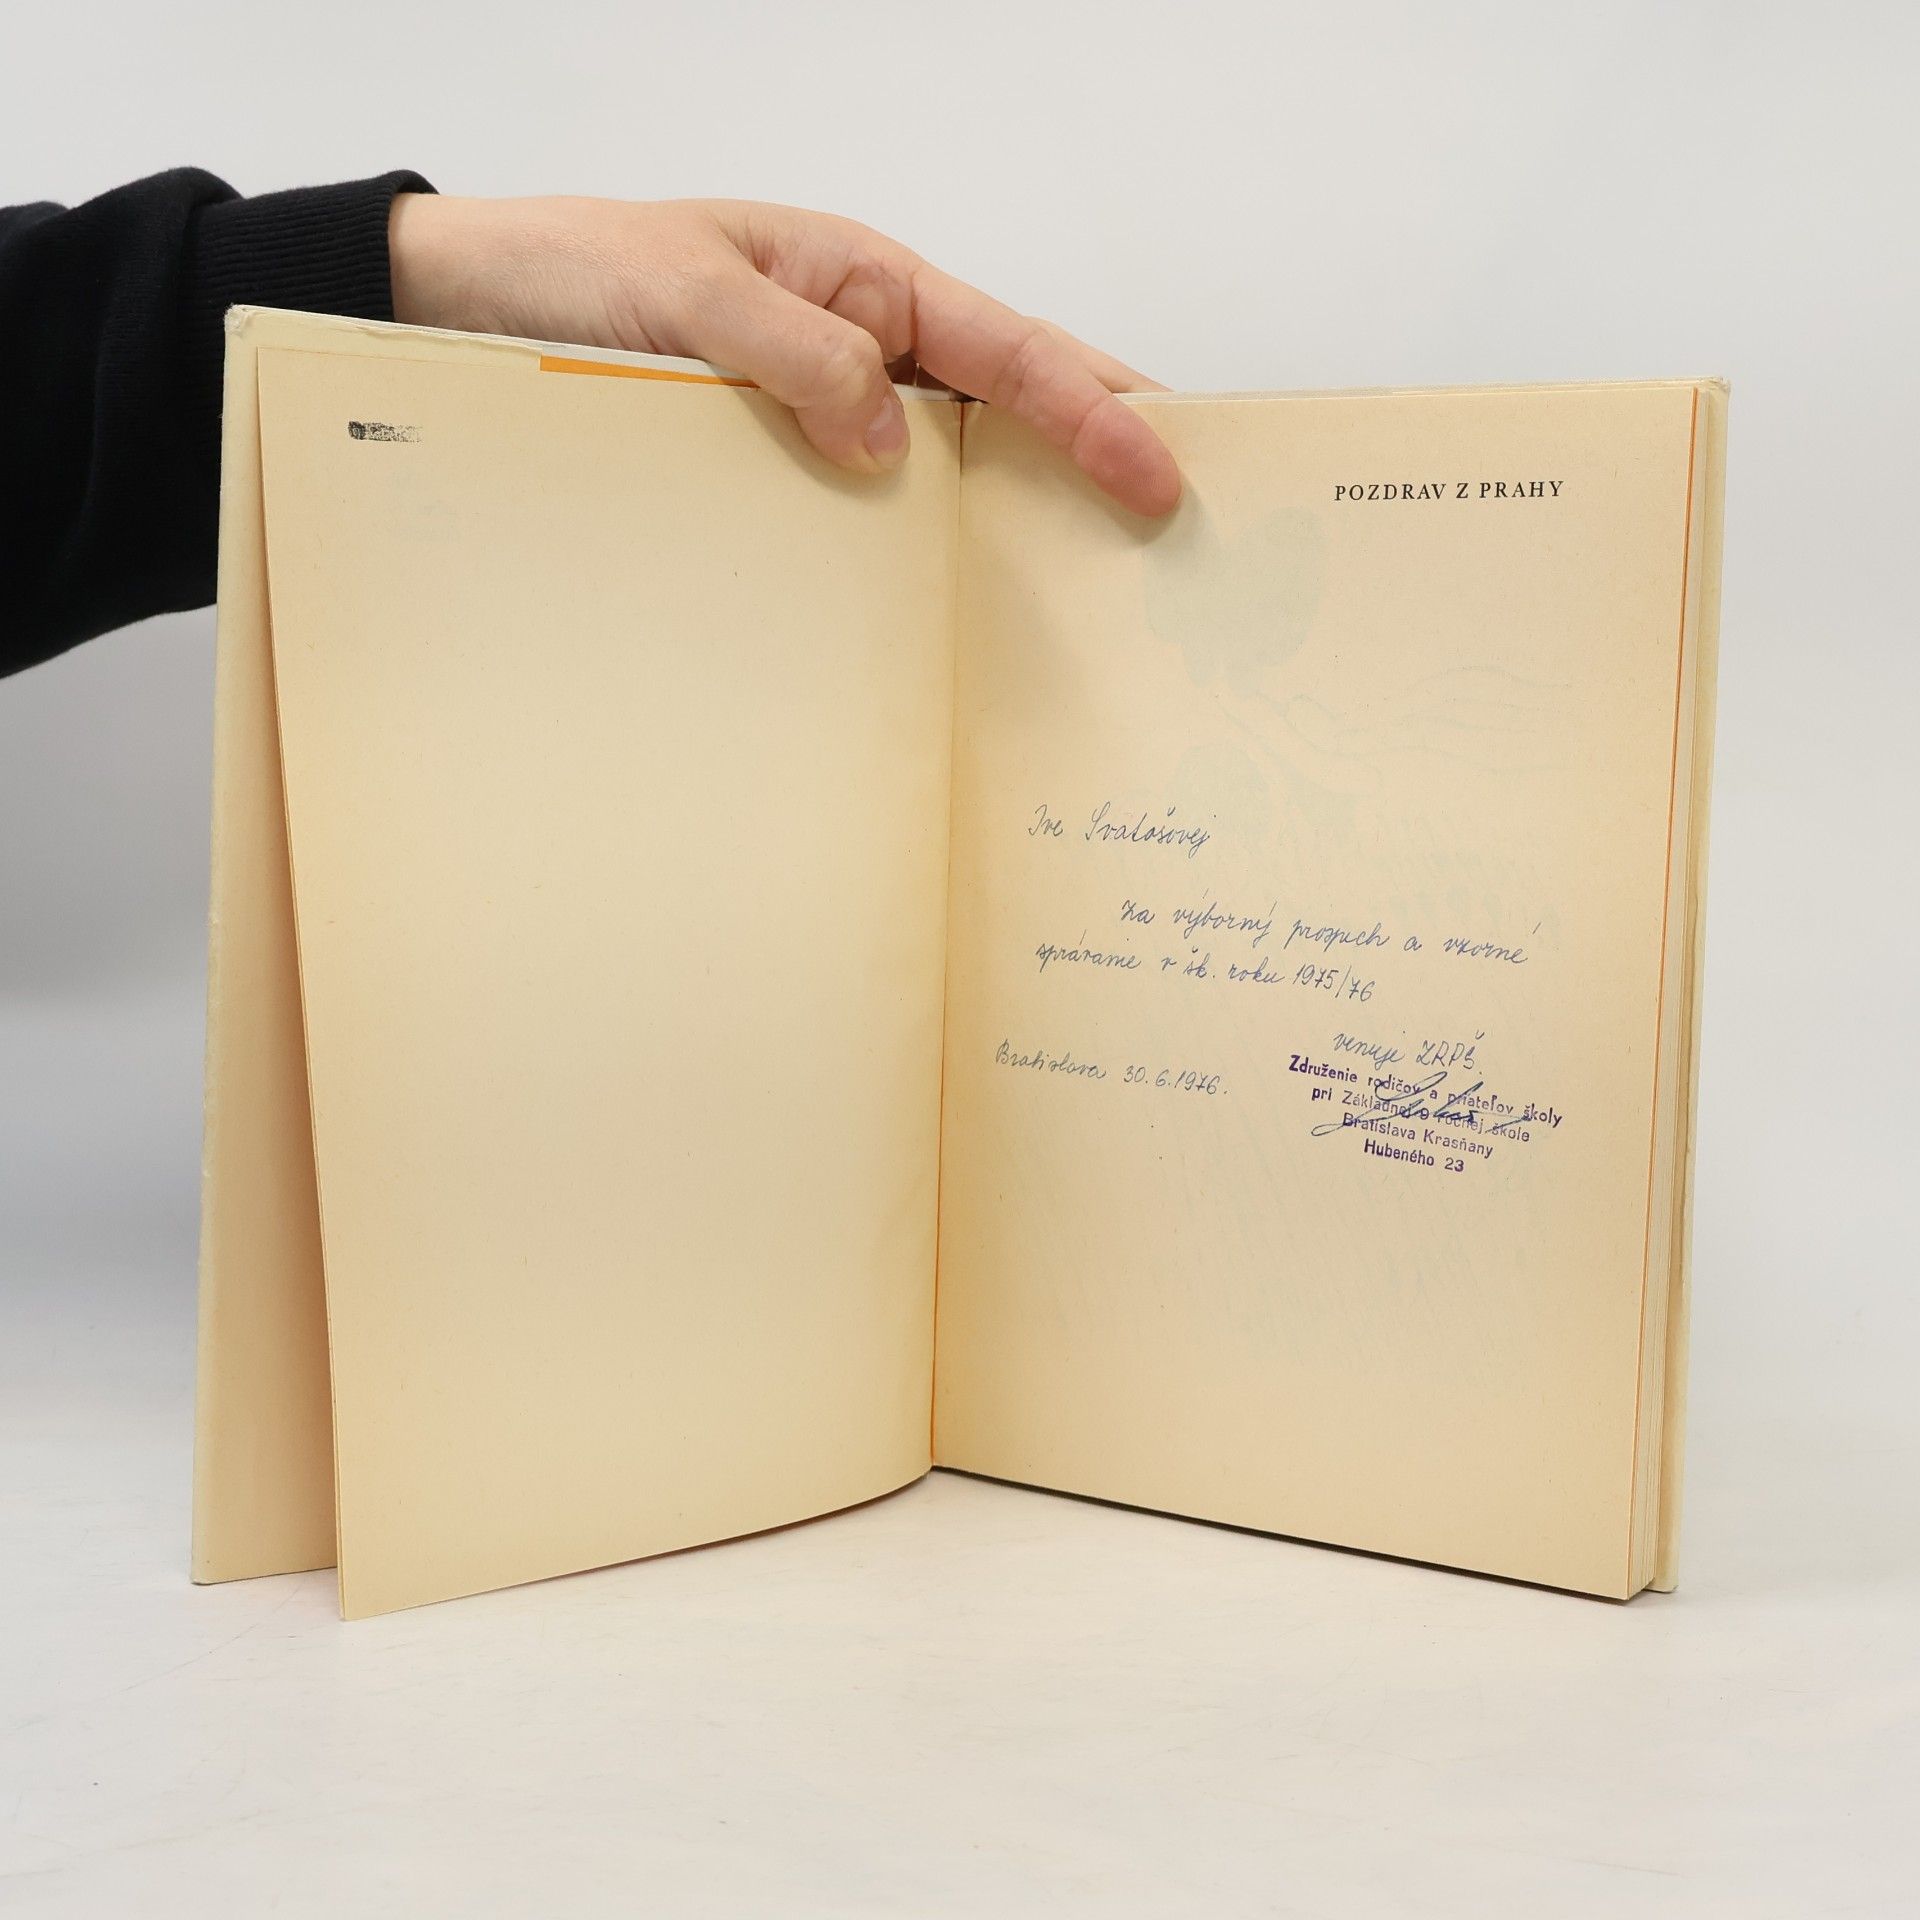 POZDRAV Z PRAHY
Ive Svatošovej
Za výborný prospech a vzorné
správanie v šk. roku 1975/76
venuje ZRPŠ.
Bratislava 30.6.1976.
Združenie rodičov a priateľov školy
pri Základnej 9 ročnej škole
Bratislava Krasňany
Hubeného 23